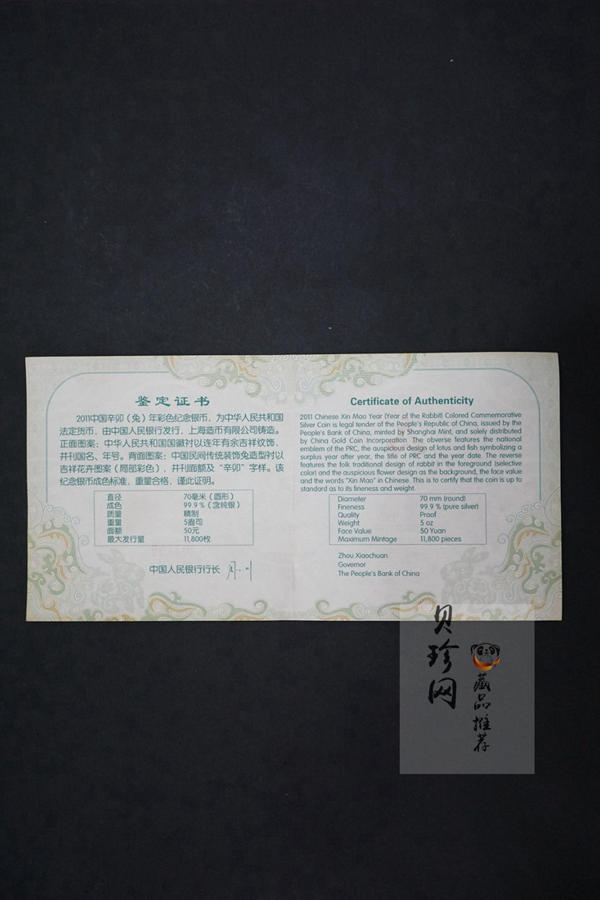 鉴定证书
2011中国辛卯（兔）年彩色纪念银币，为中华人民共和国
法定货币，由中国人民银行发行，上海造币有限公司铸造。
正面图案：中华人民共和国国徽衬以连年有余吉祥纹饰，
并刊国名、年号。背面图案：中国民间传统装饰兔造型衬以
吉祥花卉图案（局部彩色），并刊面额及“辛卯”字样。该
纪念银币成色标准，重量合格，谨此证明。
直径 70毫米（圆形）
成色 99.9％（含纯银）
质量 精制
重量 5盎司
面额 50元
最大发行量 11,800枚
中国人民银行行长
Certificate of Authenticity
2011 Chinese Xin Mao Year (Year of the Rabbit) Colored Commemorative
Silver Coin is legal tender of the People's Republic of China, issued by the
People's Bank of China, minted by Shanghai Mint, and solely distributed
by China Gold Coin Incorporation. The obverse features the national
emblem of the PRC, the auspicious design of lotus and fish symbolizing a
surplus year after year, the title of PRC and the year date. The reverse
features the folk traditional design of rabbit in the foreground (selective
color) and the auspicious flower design as the background, the face value
and the words "Xin Mao" in Chinese. This is to certify that the coin is up to
standard as to its fineness and weight.
Diameter 70 mm (round)
Fineness 99.9 % (pure silver)
Quality Proof
Weight 5 oz
Face Value 50 Yuan
Maximum Mintage 11,800 pieces
Zhou Xiaochuan
Governor
The People's Bank of China
贝珍网
藏品推荐